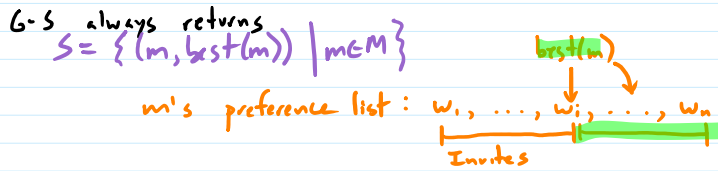 G-S always returns
S = { (m, best(m)) | m∈M }
best(m)
m's preference list : w₁, ..., wᵢ, ..., wₙ
Invites